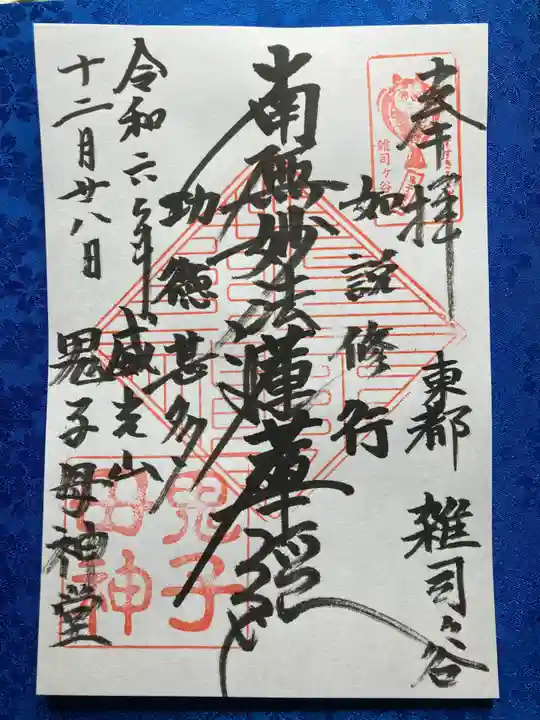 奉拝
東都 雑司ヶ谷
雑司ヶ谷
如説修行
南無妙法蓮華経
功徳甚多
令和六年
十二月廿八日
威光山
鬼子母神堂
鬼子
母神